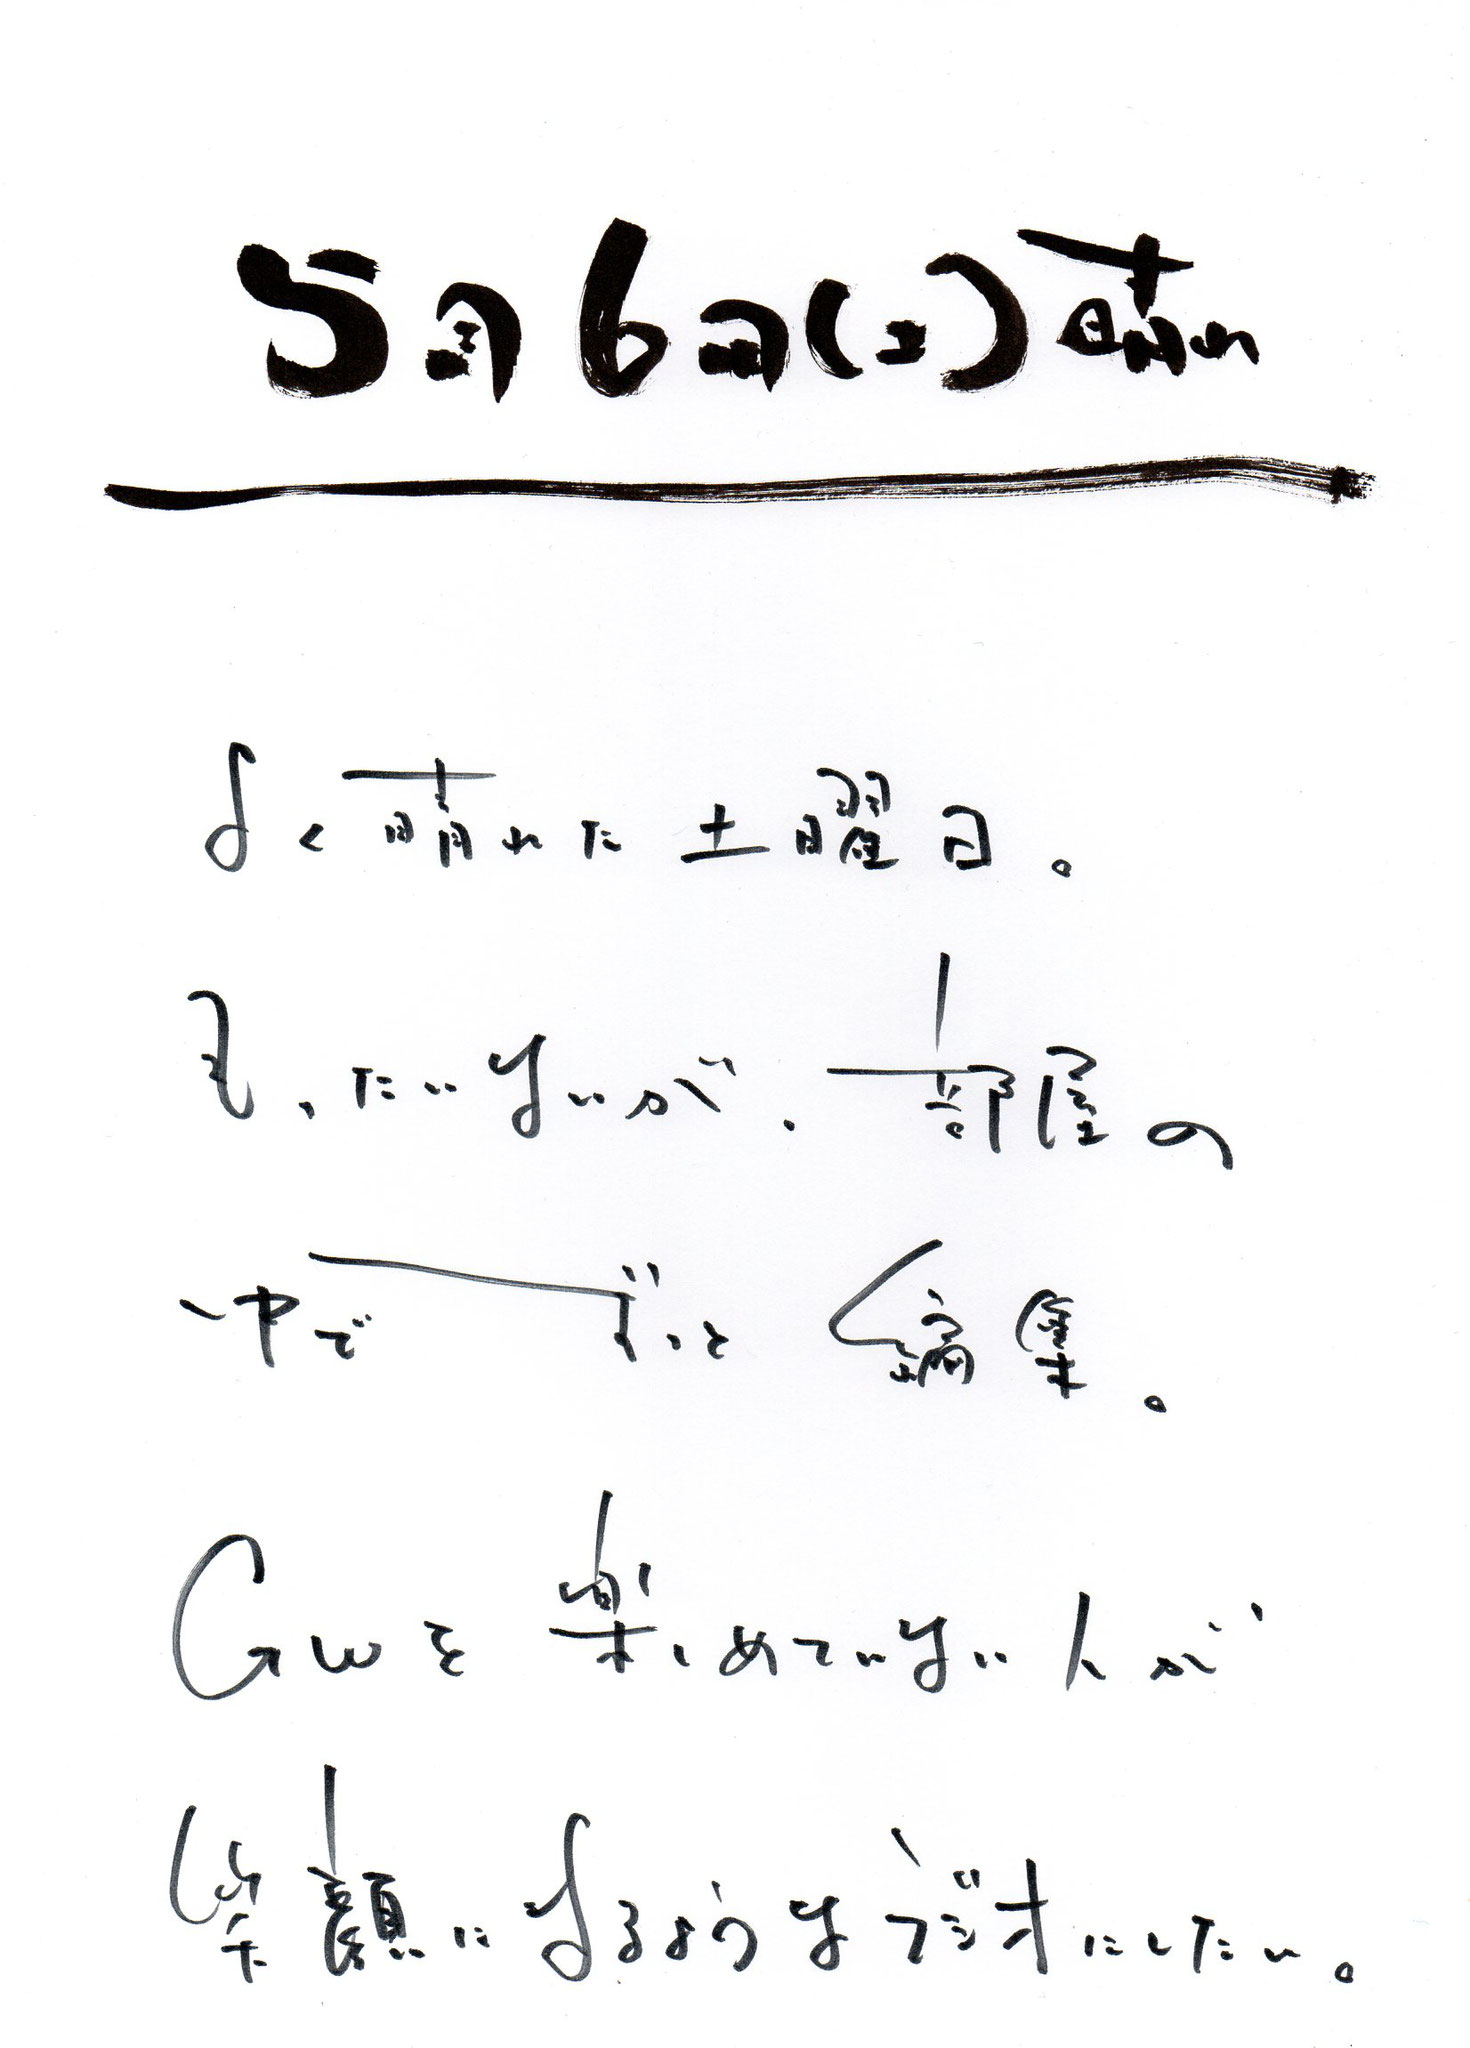 5月6日(土)晴れ
よく晴れた土曜日。
もったいないが、部屋の
中でずっと編集。
GWを楽しめていない人が
笑顔になるようなラジオにしたい。